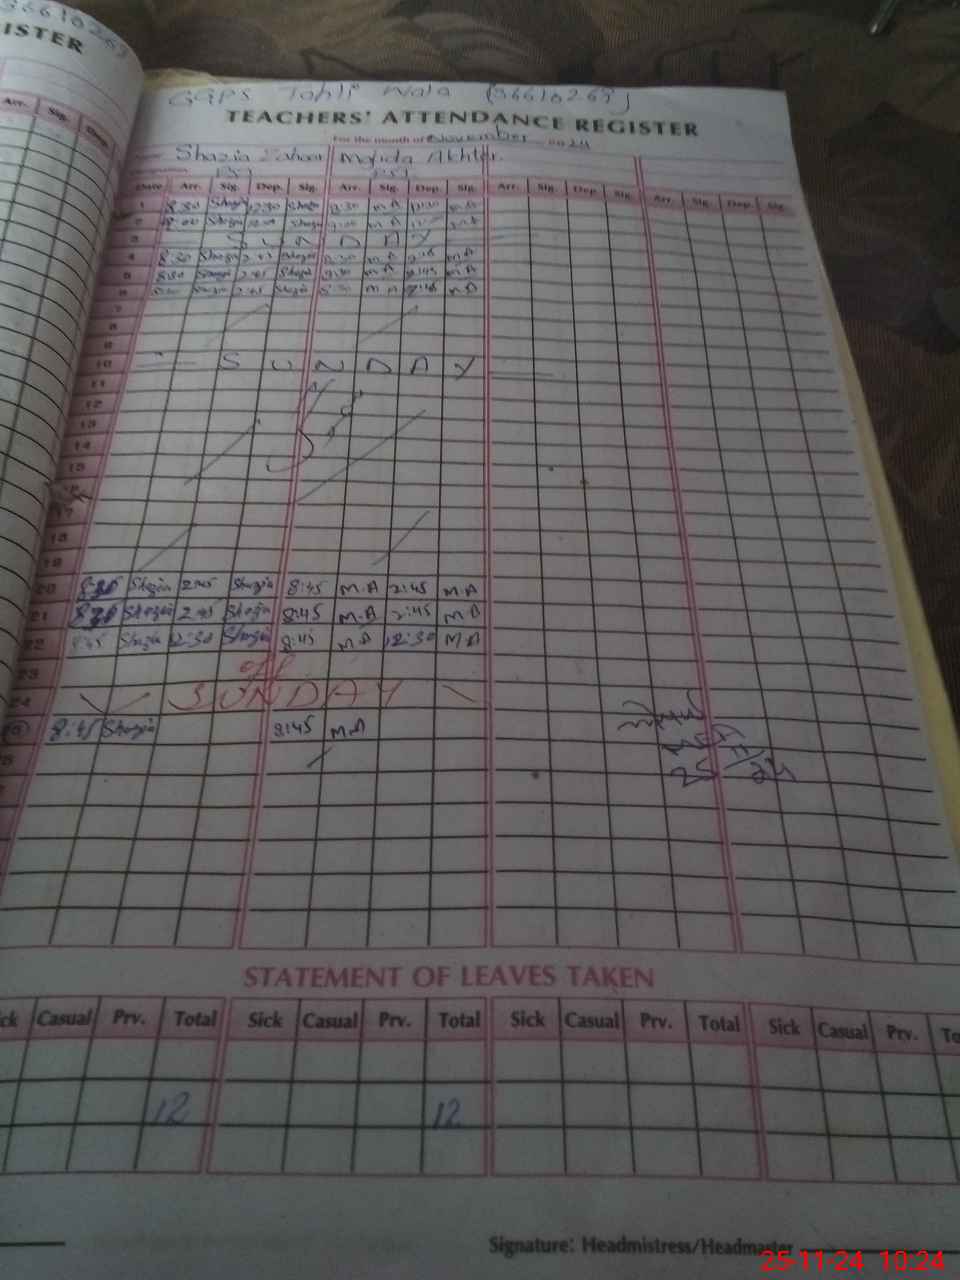 36610269
ISTER
Arr. Sig. Dep.
GGPS Tahli Wala (36610269)
TEACHERS' ATTENDANCE REGISTER
For the month of November 20 24
Shazia Zahoor Majida Akhter
Date Arr. Sig. Dep. Sig. Arr. Sig. Dep. Sig. Arr. Sig. Dep. Sig. Arr. Sig. Dep. Sig.
1 8:30 Shazia 12:30 Shazia 8:30 M.A 12:30 M.A
2 8:00 Shazia Shazia
3 SUNDAY
4 8:30 Shazia 2:45 Shazia 8:30 M.A 2:45 M.A
5 8:30 Shazia 2:45 Shazia 8:30 M.A 2:45 M.A
6 8:30 Shazia 2:45 Shazia 8:30 M.A 2:45 M.A
7
8
9
10 SUNDAY
11
12
13
14
15
16
17
18
19
20 8:30 Shazia 2:45 Shazia 8:45 M.A 2:45 M.A
21 8:30 Shazia 2:45 Shazia 8:45 M.A 2:45 M.A
22 8:45 Shazia 12:30 Shazia 8:45 M.A 12:30 M.A
23 off
24 SUNDAY
8:45 Shazia 8:45 M.A
25 11 24
STATEMENT OF LEAVES TAKEN
ck Casual Prv. Total Sick Casual Prv. Total Sick Casual Prv. Total Sick Casual Prv. To
12 12
Signature: Headmistress/Headmaster
25-11-24 10:24